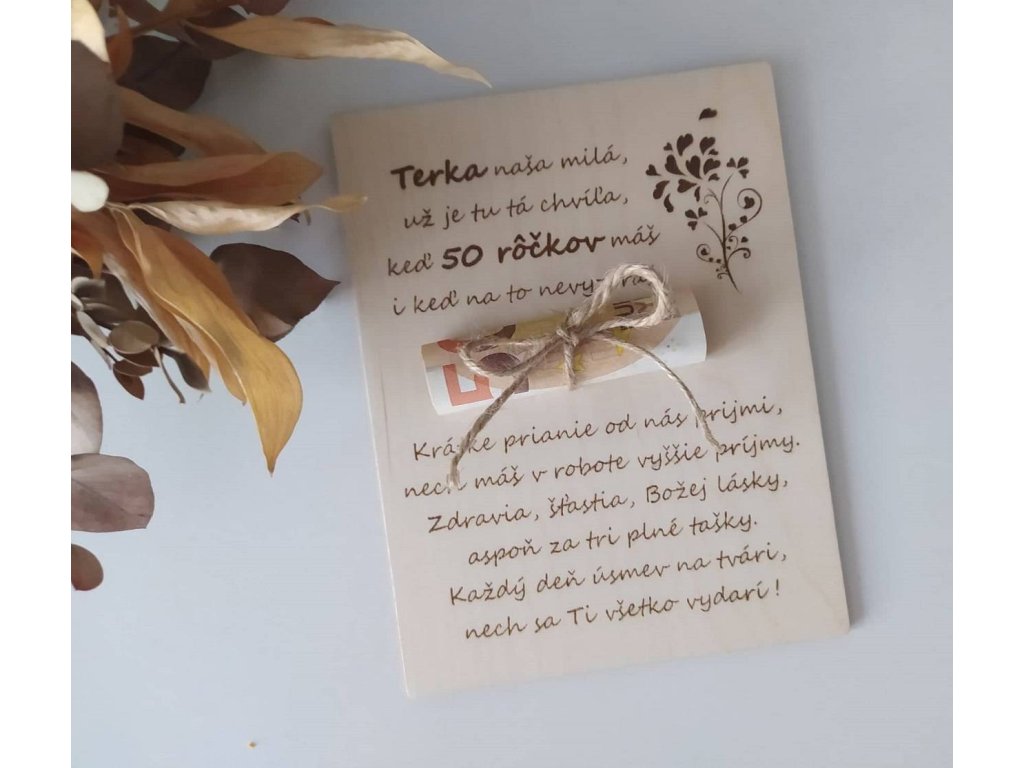 Terka naša milá,
už je tu tá chvíľa,
keď 50 rôčkov máš
i keď na to
Krátke prianie od nás prijmi,
nech máš v robote vyššie príjmy.
Zdravia, šťastia, Božej lásky,
aspoň za tri plné tašky.
Každý deň úsmev na tvári,
nech sa Ti všetko vydarí!